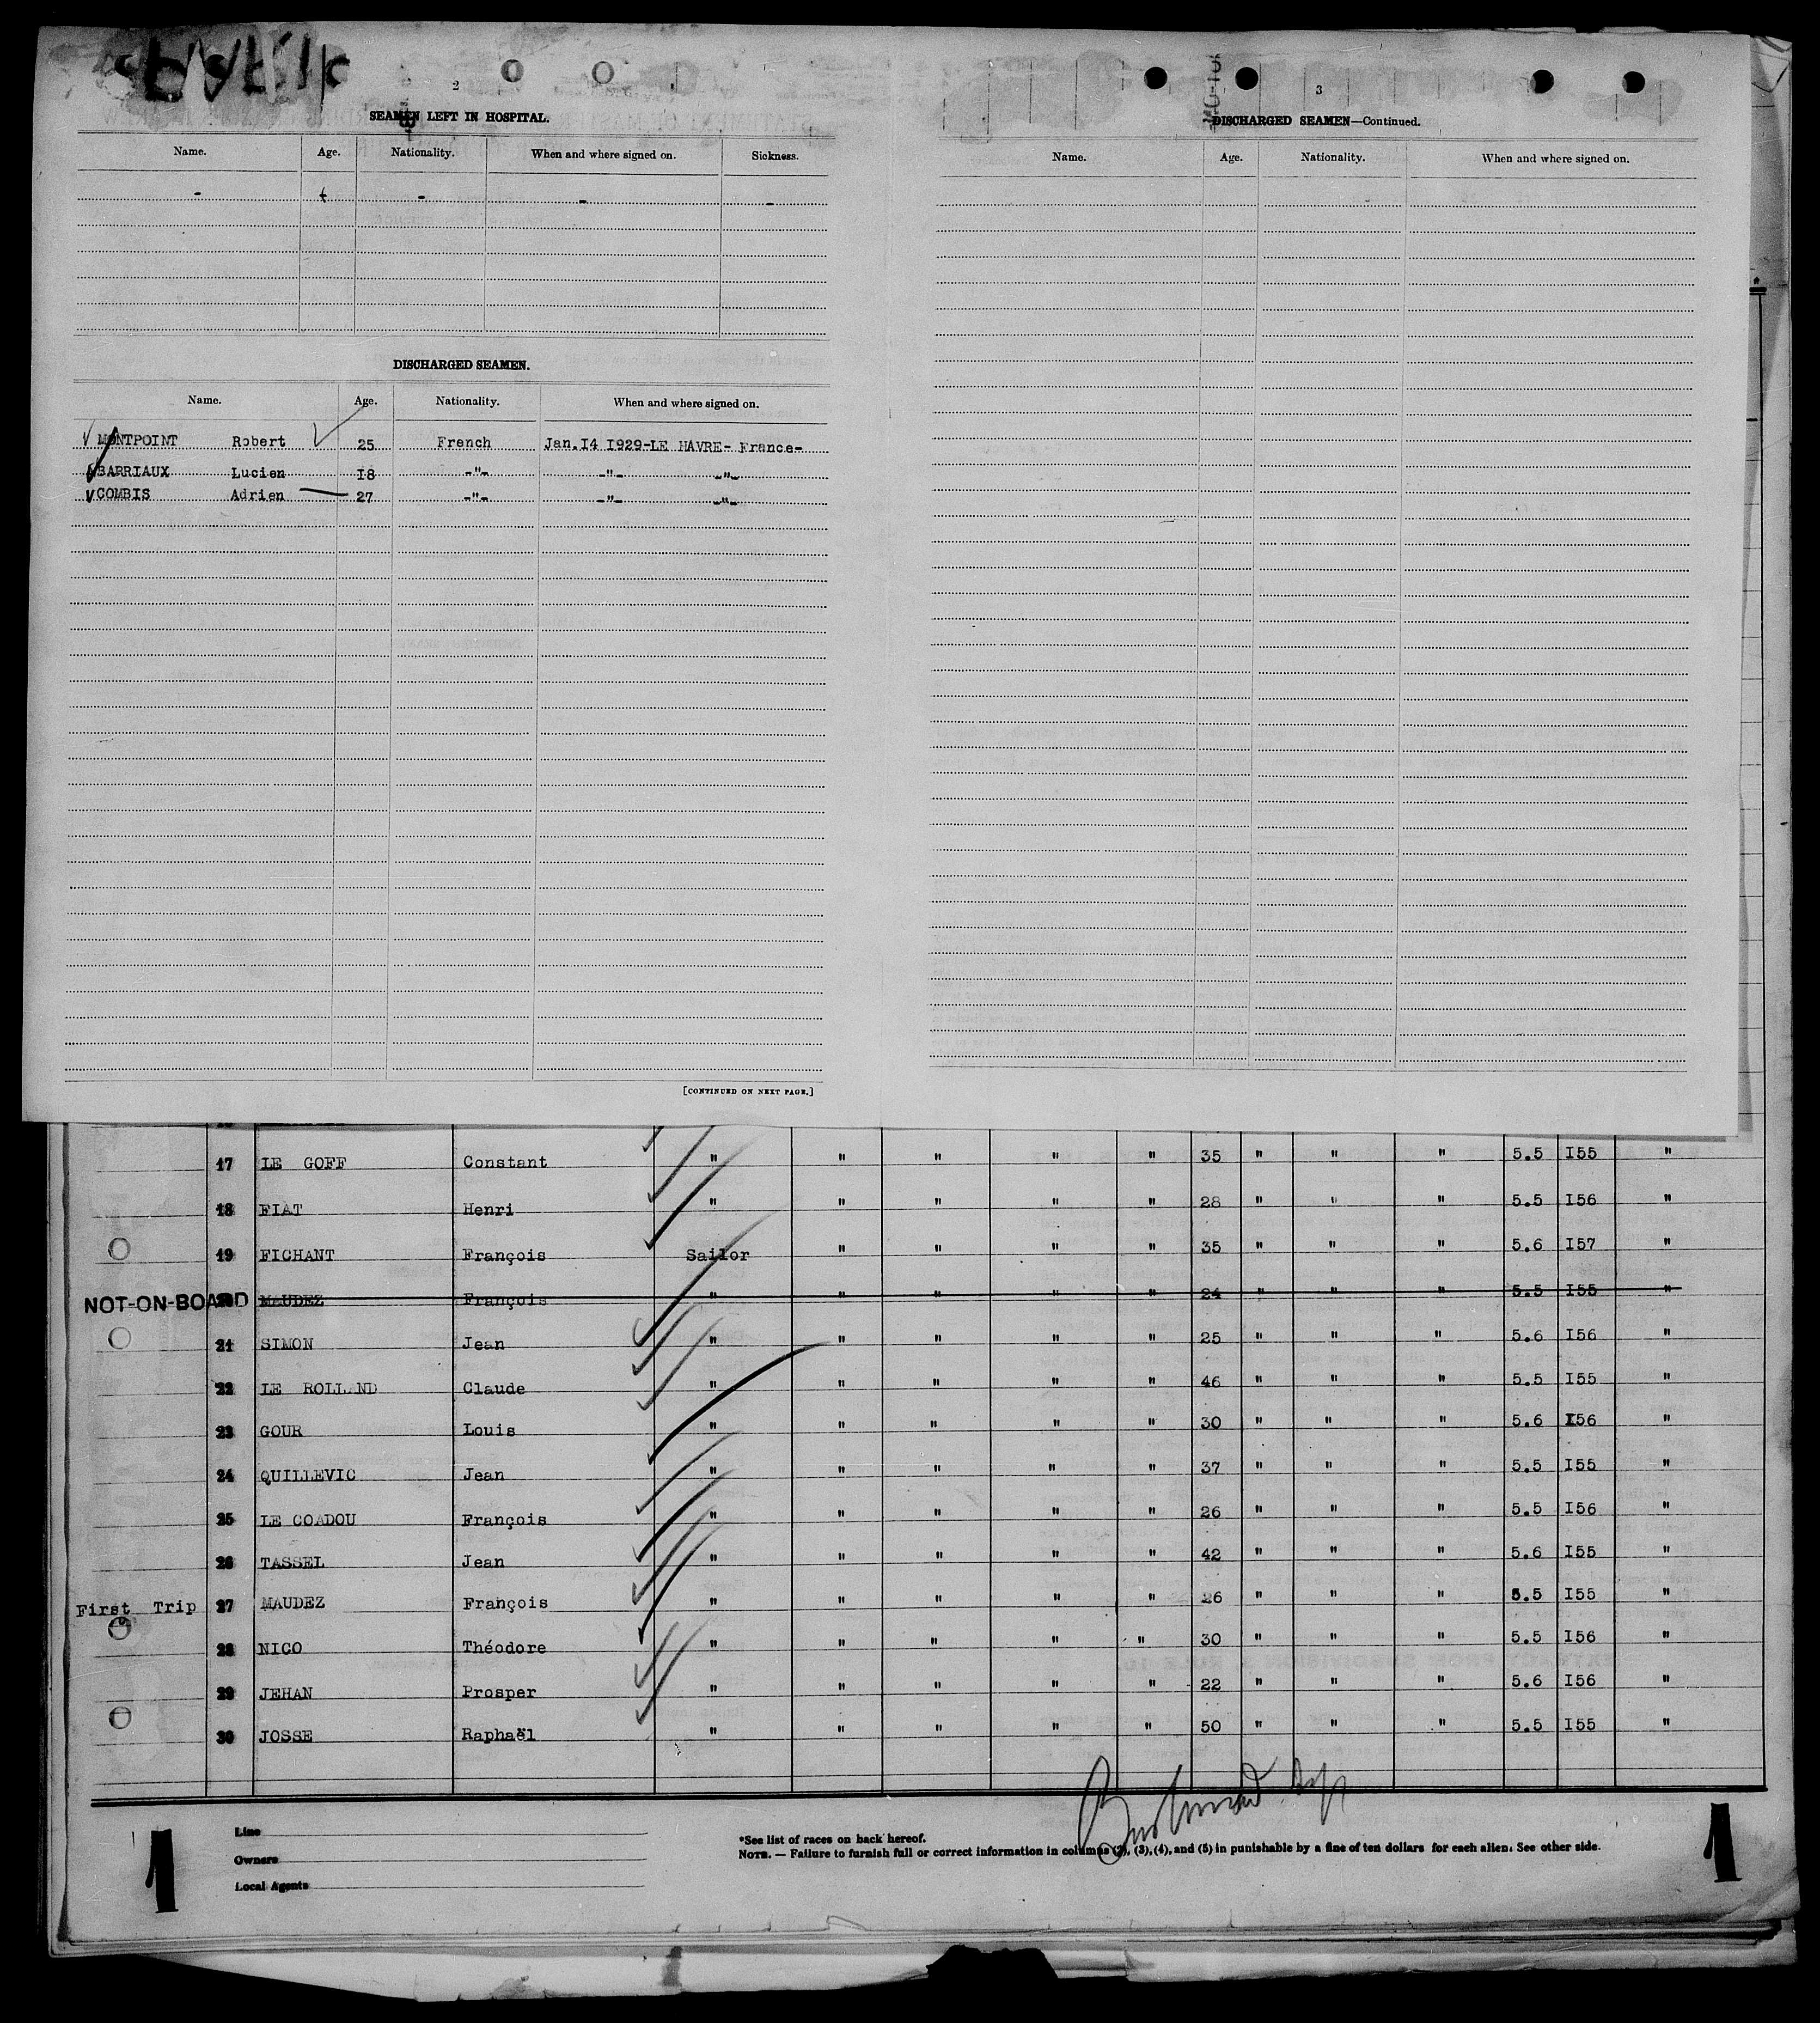 2
SEAMEN LEFT IN HOSPITAL.
Name. Age. Nationality. When and where signed on. Sickness.
- - - -
DISCHARGED SEAMEN.
Name. Age. Nationality. When and where signed on.
MONTPOINT Robert 25 French Jan.I4 I929-LE HAVRE- France-
BARRIAUX Lucien I8 -"- -"- -"-
COMBIS Adrien 27 -"- -"- -"-
[CONTINUED ON NEXT PAGE.]
3
DISCHARGED SEAMEN—Continued.
Name. Age. Nationality. When and where signed on.
17 LE GOFF Constant " " " " " 35 " " " 5.5 I55 "
18 FIAT Henri " " " " " 28 " " " 5.5 I56 "
19 FICHANT François Sailor " " " " 35 " " " 5.6 I57 "
NOT-ON-BOARD 20 MAUDEZ François " " " " " 24 " " " 5.5 I55 "
21 SIMON Jean " " " " " 25 " " " 5.6 I56 "
22 LE ROLLAND Claude " " " " " 46 " " " 5.5 I55 "
23 GOUR Louis " " " " " 30 " " " 5.6 I56 "
24 QUILLEVIC Jean " " " " " 37 " " " 5.5 I55 "
25 LE COADOU François " " " " " 26 " " " 5.5 I56 "
26 TASSEL Jean " " " " " 42 " " " 5.6 I55 "
First Trip 27 MAUDEZ François " " " " " 26 " " " 5.5 I55 "
28 NICO Théodore " " " " " 30 " " " 5.5 I56 "
29 JEHAN Prosper " " " " " 22 " " " 5.6 I56 "
30 JOSSE Raphaël " " " " " 50 " " " 5.5 I55 "
Line
Owners
Local Agents
*See list of races on back hereof.
NOTE. — Failure to furnish full or correct information in columns (2), (3), (4), and (5) in punishable by a fine of ten dollars for each alien. See other side.
1 1